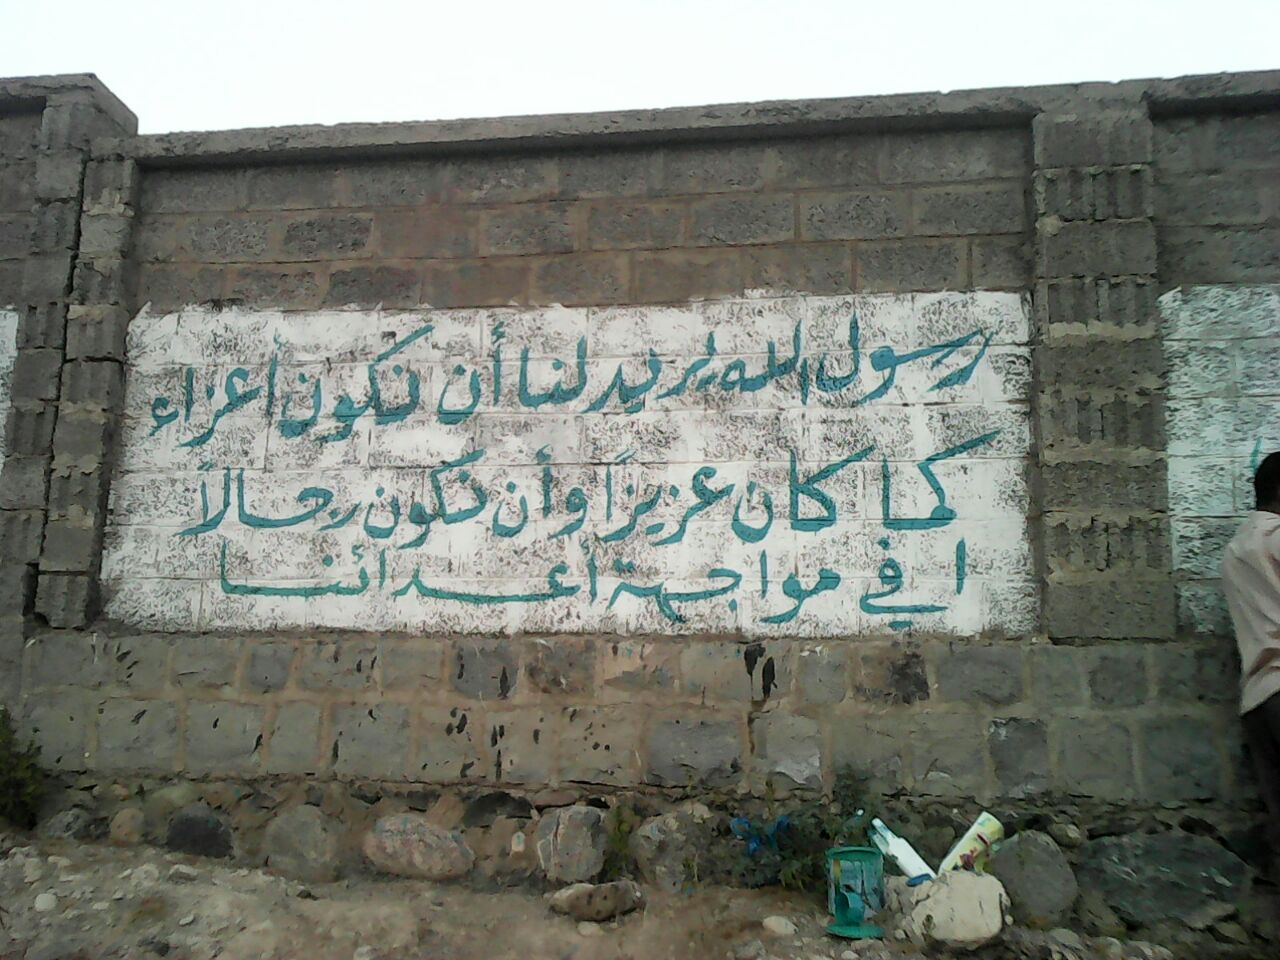 رسول الله يريد لنا أن نكون أعزاء
كما كان عزيزاً وأن نكون رجالاً
في مواجهة أعدائنا